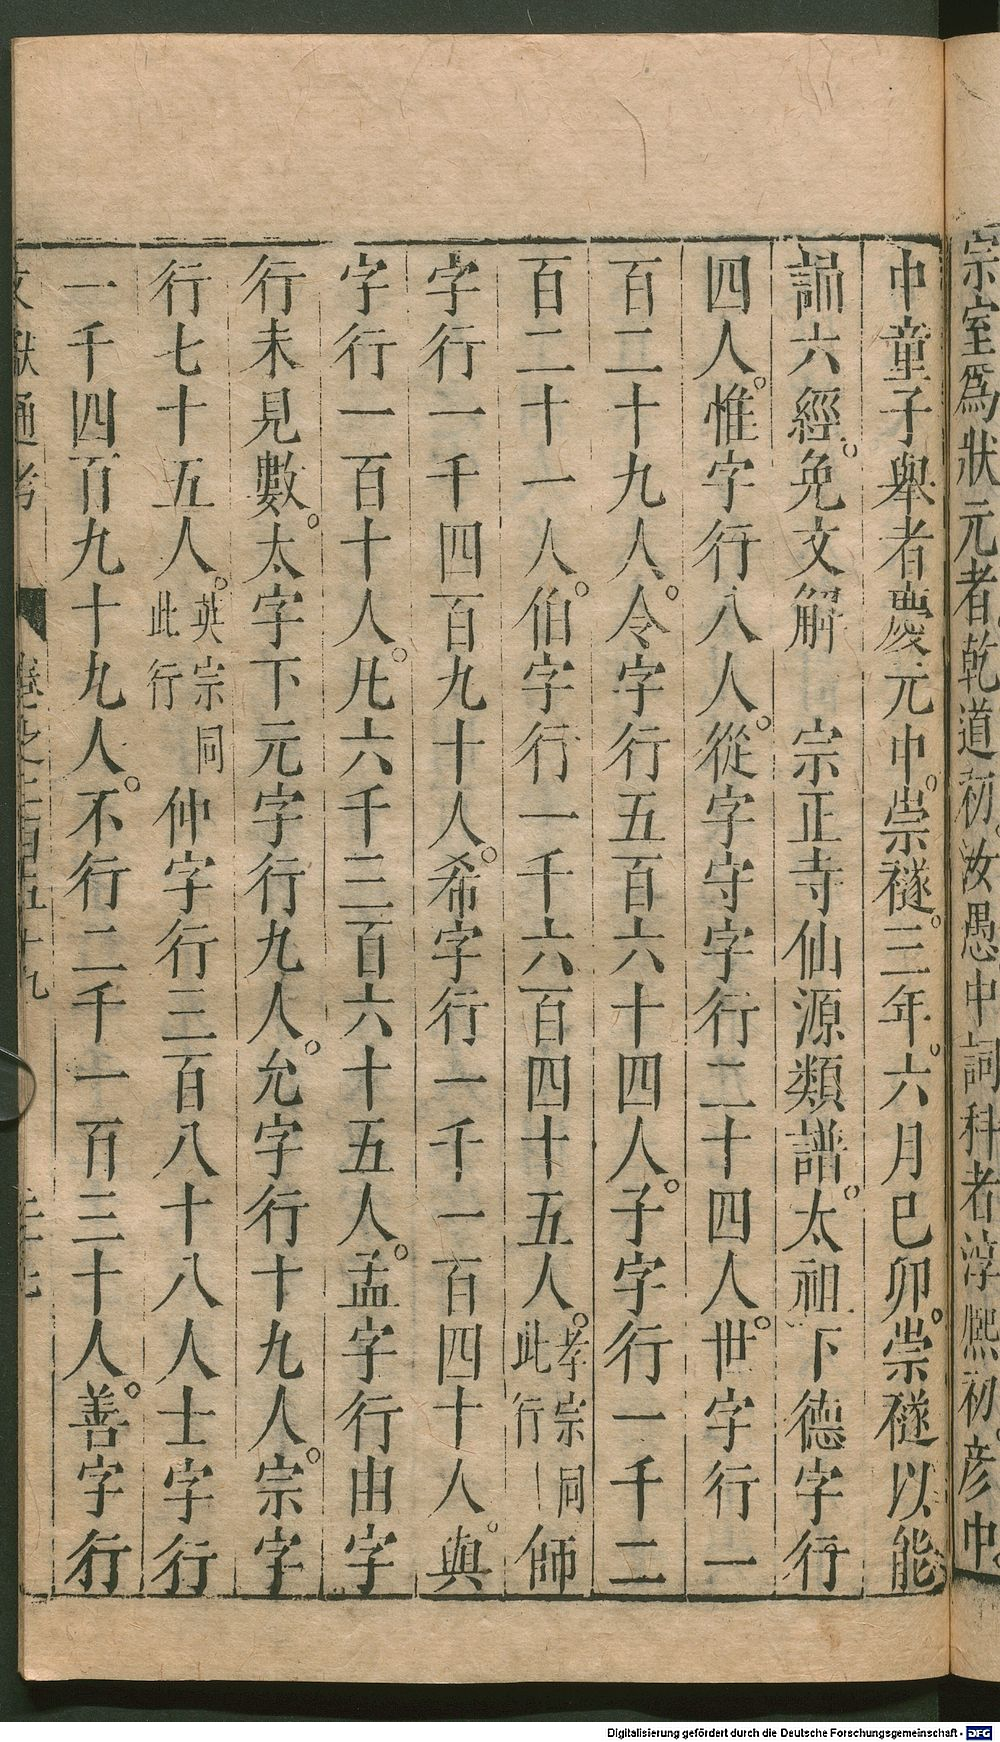 宗室爲狀元者乾道初汝愚中詞科者淳熙初彦中
中童子舉者慶元中崇禭三年六月巳卯崇禭以能
誦六經免文解　宗正寺仙源類譜太祖下德字行
四人惟字行八人從字守字行二十四人世字行一
百二十九人令字行五百六十四人子字行一千二
百二十一人伯字行一千六百四十五人孝宗同此行師
字行一千四百九十人希字行一千一百四十人與
字行一百十人凡六千三百六十五人孟字行由字
行未見數太字下元字行九人允字行十九人宗字
行七十五人英宗同此行仲字行三百八十八人士字行
一千四百九十九人不行二千一百三十人善字行
文獻通考　卷之二百五十九
Digitalisierung gefördert durch die Deutsche Forschungsgemeinschaft - DFG